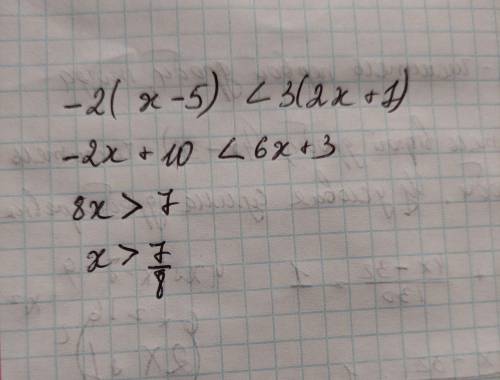 -2( x-5) < 3(2x+1)
-2x+10 < 6x+3
8x > 7
x > 7/8